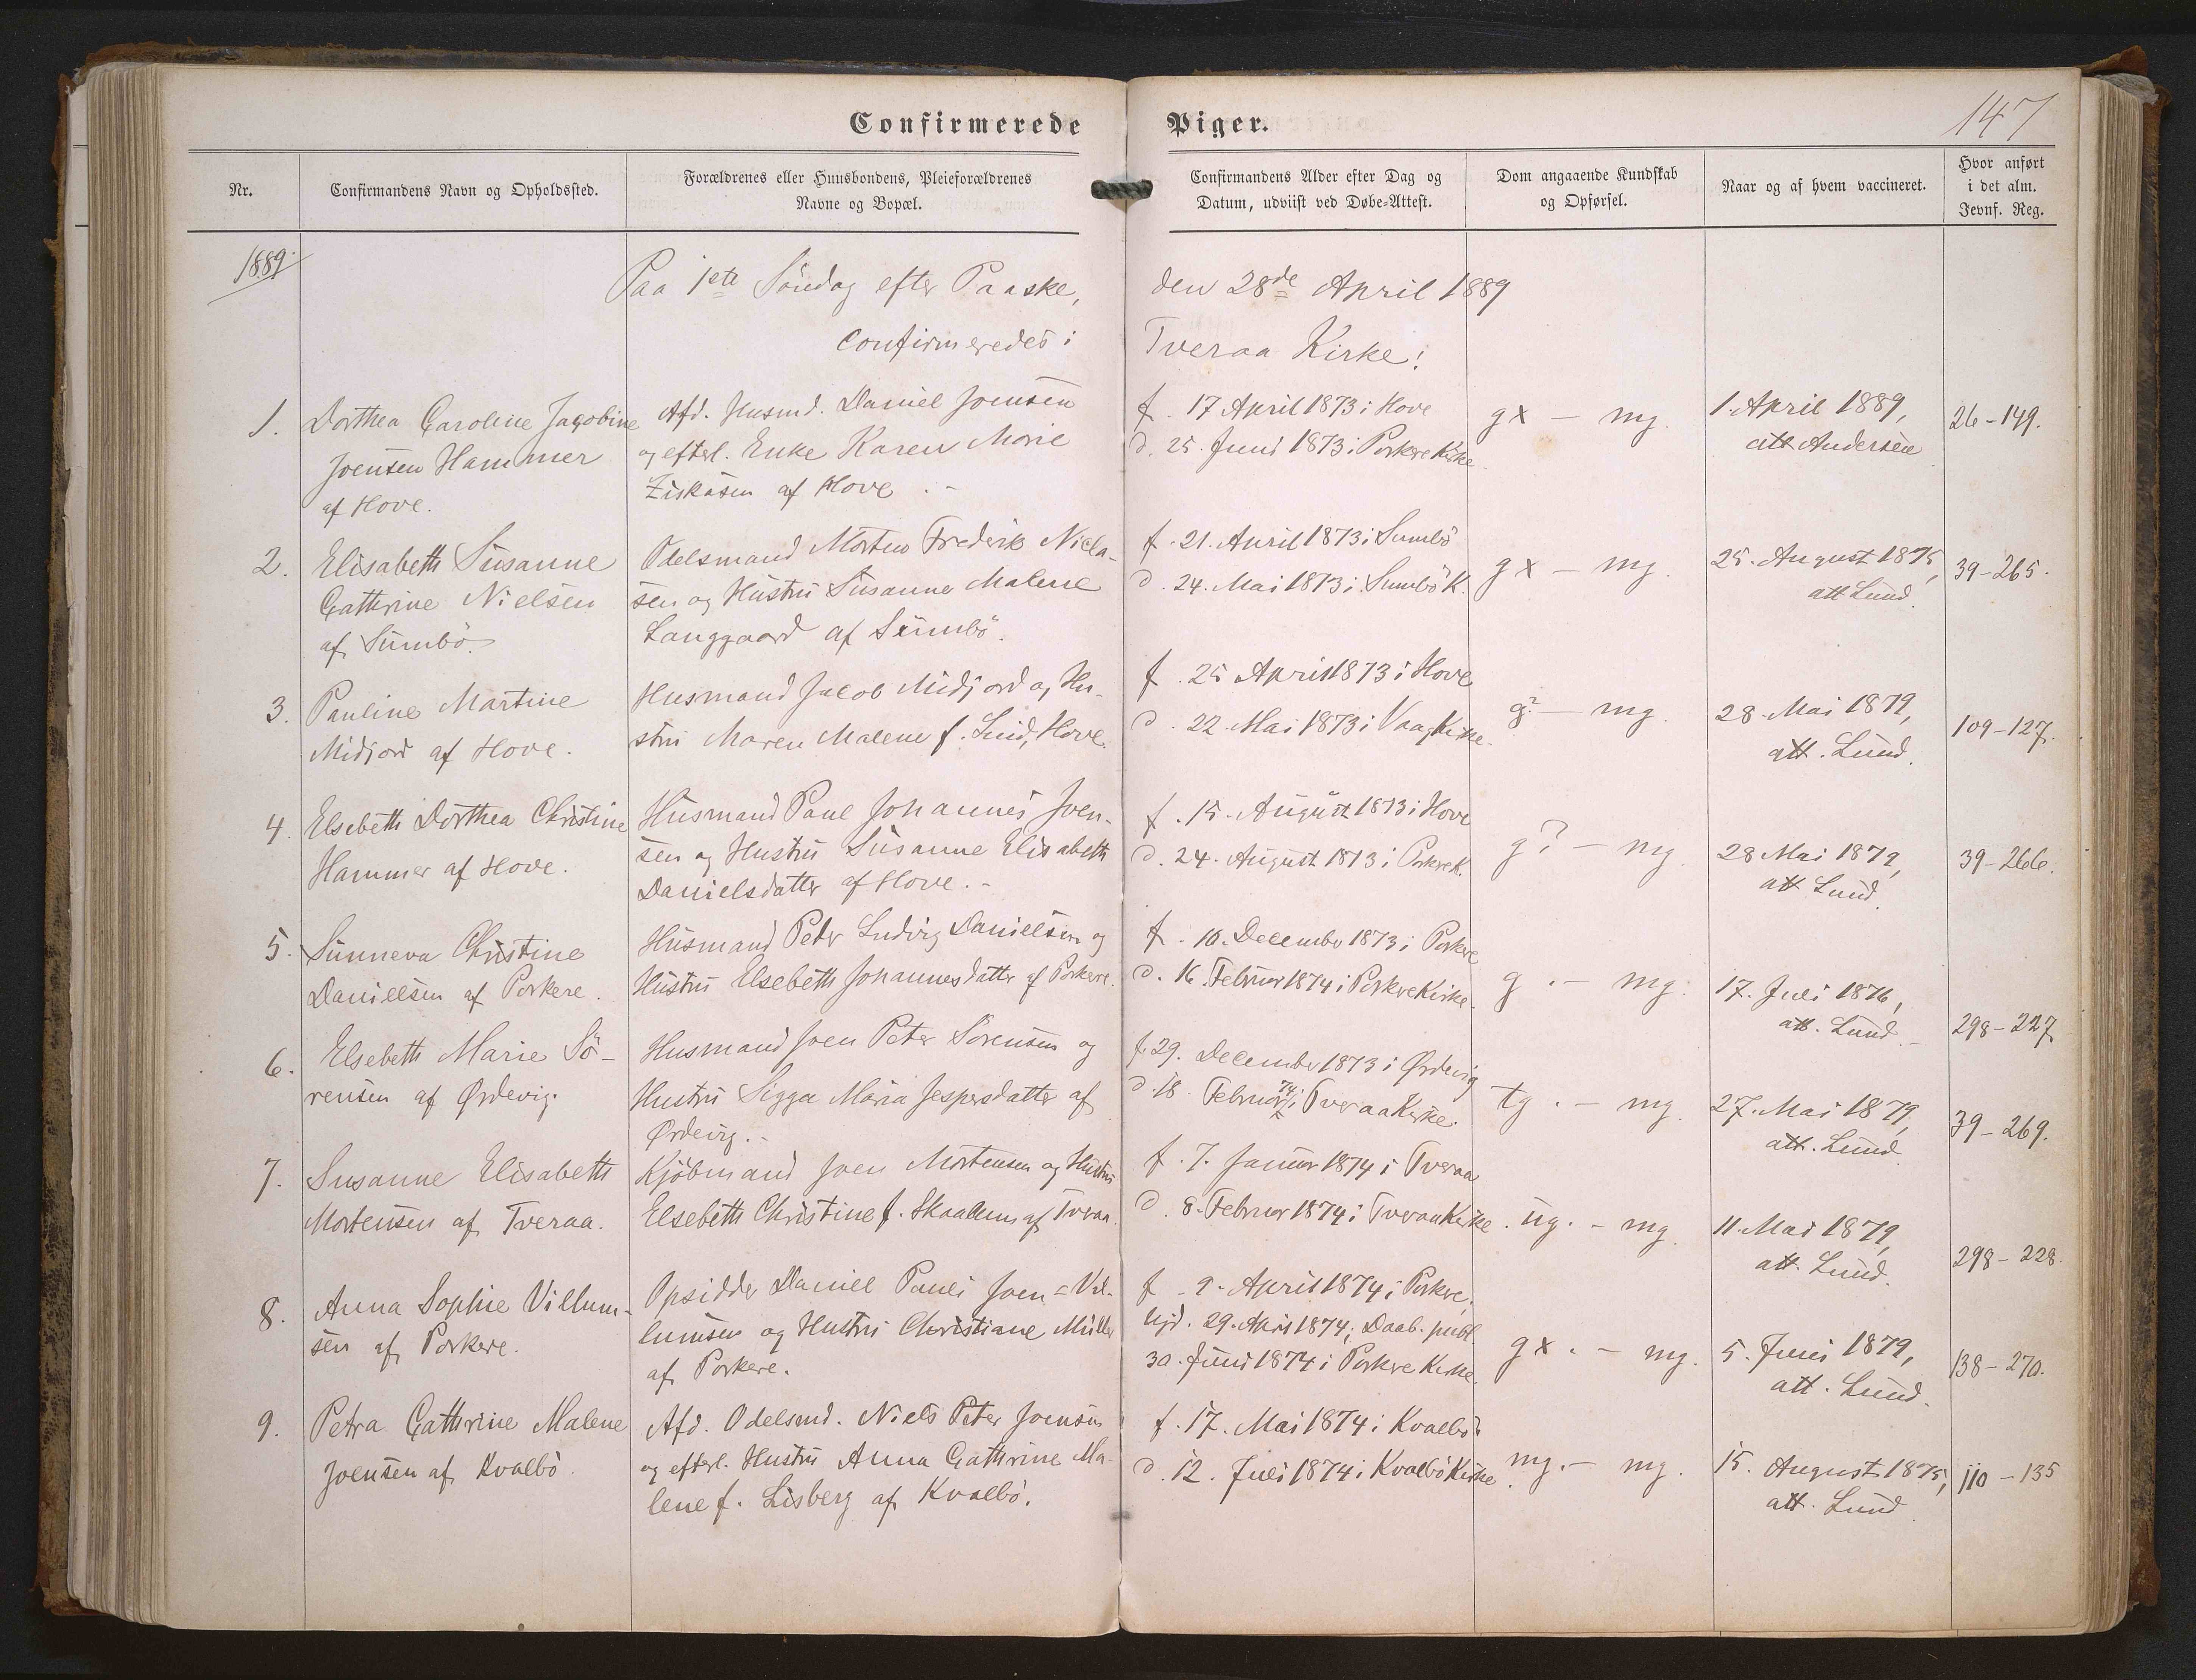 Confirmerede Piger.
147
Nr.
Confirmandens Navn og Opholdssted.
Forældrenes eller Huusbondens, Pleieforældrenes
Navne og Bopæl.
Confirmandens Alder efter Dag og
Datum, udviist ved Døbe-Attest.
Dom angaaende Kundskab
og Opførsel.
Naar og af hvem vaccineret.
Hvor anført
i det alm.
Jevnf. Reg.
1889.
Paa 1ste Söndag efter Paaske, den 28de April 1889
confirmeredes i Tveraa Kirke:
1.
Dorthea Caroline Jacobine
Joensen Hammer
af Hove.
Afd. Husmd. Daniel Joensen
og efterl. Enke Karen Marie
Ziskasen af Hove.-
f. 17 April 1873 i Hove
d. 25. Juni 1873 i Porkere Kirke
gx - mg.
1. April 1889,
att. Andersen
26-149.
2.
Elisabeth Susanne
Cathrine Nielsen
af Sumbö.
Odelsmand Morten Frederik Niela-
sen og Hustru Susanne Malene
Langgaard af Sumbö.
f. 21. April 1873 i Sumbö
d. 24. Mai 1873 i Sumbö K.
gx - mg.
25. August 1875,
att Lund.
39-265.
3.
Pauline Martine
Midjord af Hove.
Husmand Jacob Midjord og Hu-
stru Maren Malene f. Lund, Hove.
f. 25 April 1873 i Hove
d. 22. Mai 1873 i Vaag Kirke.
g? - mg.
28. Mai 1879,
att. Lund.
109-127.
4.
Elsebeth Dorthea Christine
Hammer af Hove.
Husmand Poul Johannes Joen-
sen og Hustru Susanne Elisabeth
Danielsdatter af Hove.-
f. 15. August 1873 i Hove
d. 24. August 1873 i Porkere K.
g? - mg.
28 Mai 1879,
att Lund.
39-266.
5.
Sunneva Christine
Danielsen af Porkere.
Husmand Peter Ludvig Danielsen og
Hustru Elsebeth Johannesdatter af Porkere.
f. 10. December 1873 i Porkere
d. 16. Februar 1874 i Porkere Kirke.
g. - mg.
17. Juli 1876,
att. Lund.-
298-227
6.
Elsebeth Marie Sö-
rensen af Ørdevig.
Husmand Joen Peter Sörensen og
Hustru Sigga Maria Jespersdatter af
Ørdevig.-
f. 29. December 1873 i Ørdevig
d. 18. Februar 74 i Tveraa Kirke.
tg. - mg.
27. Mai 1879,
att. Lund.
39-269.
7.
Susanne Elisabeth
Mortensen af Tveraa.
Kjöbmand Joen Mortensen og Hustru
Elsebeth Christine f. Skaalum af Tveraa.
f. 7. Januar 1874 i Tveraa
d. 8. Februar 1874 i Tveraa Kirke.
ug. - mg
11. Mai 1879,
att. Lund.
298-228.
8.
Anna Sophie Villum-
sen af Porkere.
Opsidder Daniel Pauli Joen=Vil-
lumsen og Hustru Christiane Müller
af Porkere.
f. 9. April 1874 i Porkere,
hjd. 29. April 1874; Daab. publ.
30. Juni 1874 i Porkere Kirke.
gx. - mg.
5. Juni 1879,
att. Lund.
138-270.
9.
Petra Cathrine Malene
Joensen af Kvalbö.
Afd. Odelsmd. Niels Peter Joensen
og efterl. Hustru Anna Cathrine Ma-
lene f. Lisberg af Kvalbö.
f. 17. Mai 1874 i Kvalbö
d. 12. Juli 1874 i Kvalbö Kirke
mg. - mg.
15. August 1875,
att. Lund
110-135